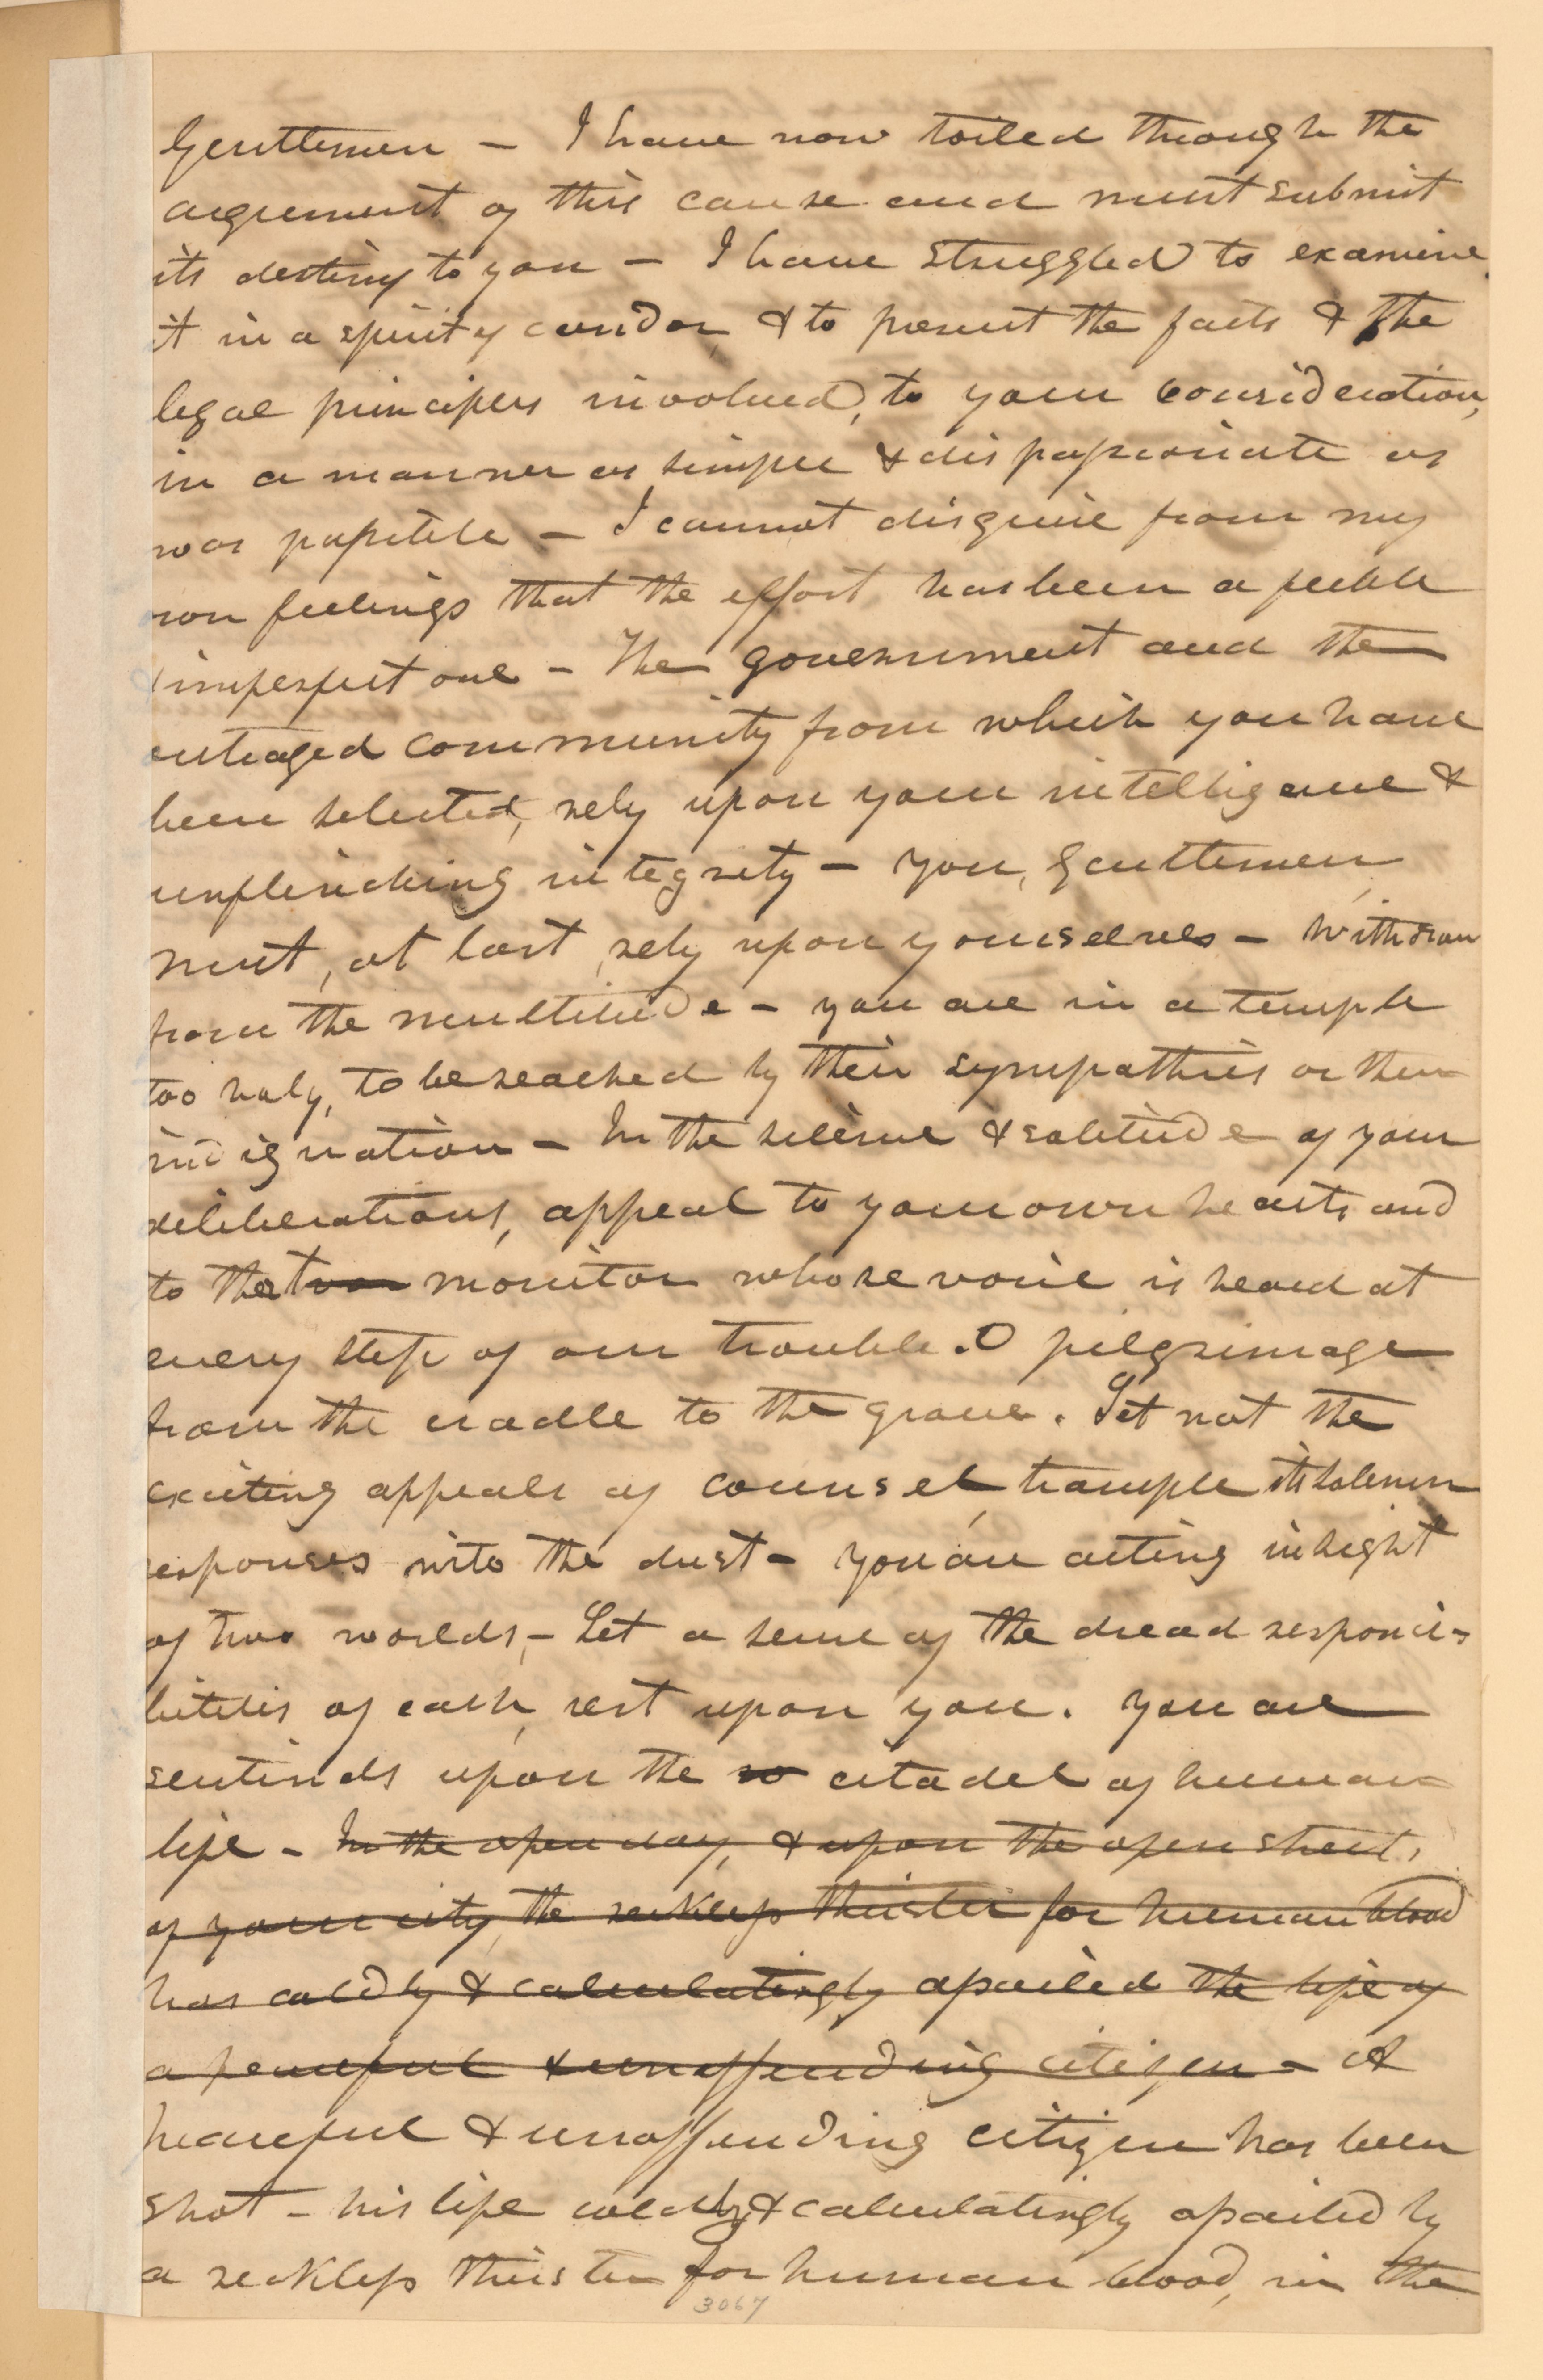 Gentlemen — I have now toiled through the
argument of this cause and must submit
its destiny to you — I have struggled to examine
it in a spirit of candor, & to present the facts & the
legal principles involved, to your consideration,
in a manner as simple & dispassionate as
was possible — I cannot disguise from my
own feelings that the effort has been a feeble
& imperfect one — The government and the
outraged community from which you have
been selected, rely upon your intelligence &
unflinching integrity — You, gentlemen,
must, at last, rely upon yourselves — Withdrawn
from the multitude — you are in a temple
too holy, to be reached by their sympathies or their
indignation — In the silence & solitude of your
deliberations, appeal to your own hearts and
to that monitor whose voice is heard at
every step of our troubled pilgrimage
from the cradle to the grave. Let not the
exciting appeals of counsel, trample its solemn
responses into the dust — You are acting in sight
of two worlds, — Let a sense of the dread responsi-
bilities of each, rest upon you. You are
sentinels upon the so citadel of human
life — In the open day, & upon the open streets,
of your city, the reckless thirster for human blood
has coldly & calculatingly assailed the life of
a peaceful & unoffending citizen — A
peaceful & unoffending citizen has been
shot — his life coldly & calculatingly assailed by
a reckless thirster for human blood, in the
3067